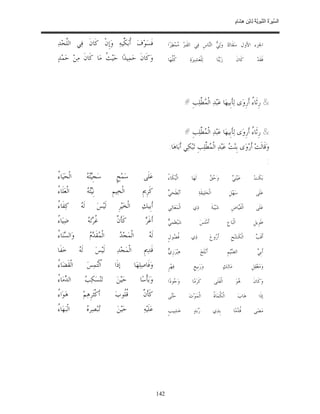 السِّيرَةُ النَّبَوِيَّةُ لابْنِ هِشَامٍ
الجزء الأول سِقَايَةً وَلِيَّ النَّاسِ فِي فَسَوْفَ أُبَكِّيهِ وَإِنْ كَانَ فِي اللَّحْدِ
فَقَدْ كَانَ زَيْنًا لِلْعَشِيرَةِ كُلِّهَا وَكَانَ حَمِيدًا حَيْثُ مَا كَانَ مِنْ حَمْدِ
& رِثَاءُ أَرْوَى لِأَبِيهَا عَبْدِ الْمُطَّلِبِ #
& رِثَاءُ أَرْوَى لِأَبِيهَا عَبْدِ الْمُطَّلِبِ #
وَقَالَتْ أَرْوَى بِنْتُ عَبْدِ الْمُطَّلِبِ تَبْكِي أَبَاهَا
:
بَكَتْ عَيْنِي وَحُقَّ لَهَا الْبُكَاءُ عَلَى سَمْحٍ سَجِيَّتُهُ الْحَيَاءُ
عَلَى سَهْلِ الْخَلِيقَةِ أَبْطَحِيٍّ كَرِيمِ الْخِيمِ نِيَّتُهُ الْعَلَاءُ
عَلَى الْفَيَّاضِ شَيْبَةَ ذِي الْمَعَالِي أَبِيكِ الْخَيْرِ لَيْسَ لَهُ كِفَاءُ
طَوِيلِ الْبَاعِ أَمْلَسَ شَيْظَمِيٍّ أَغَرَّ كَأَنَّ غُرَّتَهُ ضِيَاءُ
أَقَبِّ الْكَشْحِ أَرْوَعَ ذِي فُضُولٍ لَهُ الْمَجْدُ الْمُقَدَّمُ وَالسَّنَاءُ
أَبِيِّ الضَّيْمِ أَبْلَجَ هِبْرِزِيٍّ قَدِيمِ الْمَجْدِ لَيْسَ لَهُ خَفَاءُ
وَمَعْقِلِ مَالِكٍ وَرَبِيعِ فِهْرٍ وَفَاصِلِهَا إِذَا اُلْتُمِسَ الْقَضَاءُ
وَكَانَ هُوَ الْفَتَى كَرَمًا وَجُودًا وَبَأْسًا حَيْنَ تَنْسَكِبُ الدِّمَاءُ
إِذَا هَابَ الْكُمَاةُ الْمَوْتَ حَتَّى كَأَنَّ قُلُوبَ أَكْثَرِهِمْ هَوَاءُ
مَضَى قُدُمًا بِذِي رُبَدٍ خَشِيبٍ عَلَيْهِ حَيْنَ تُبْصِرُهُ الْبَهَاءُ
142